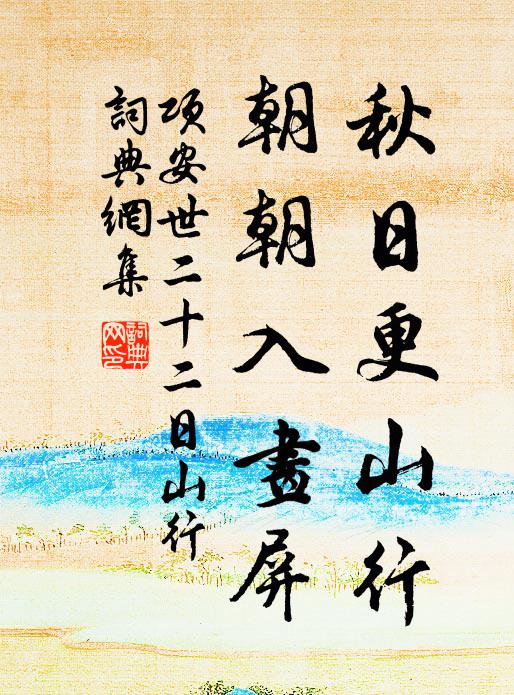 秋日更山行
朝朝入畫屏
項安世二十二日山行
詞典網集
詞典网印